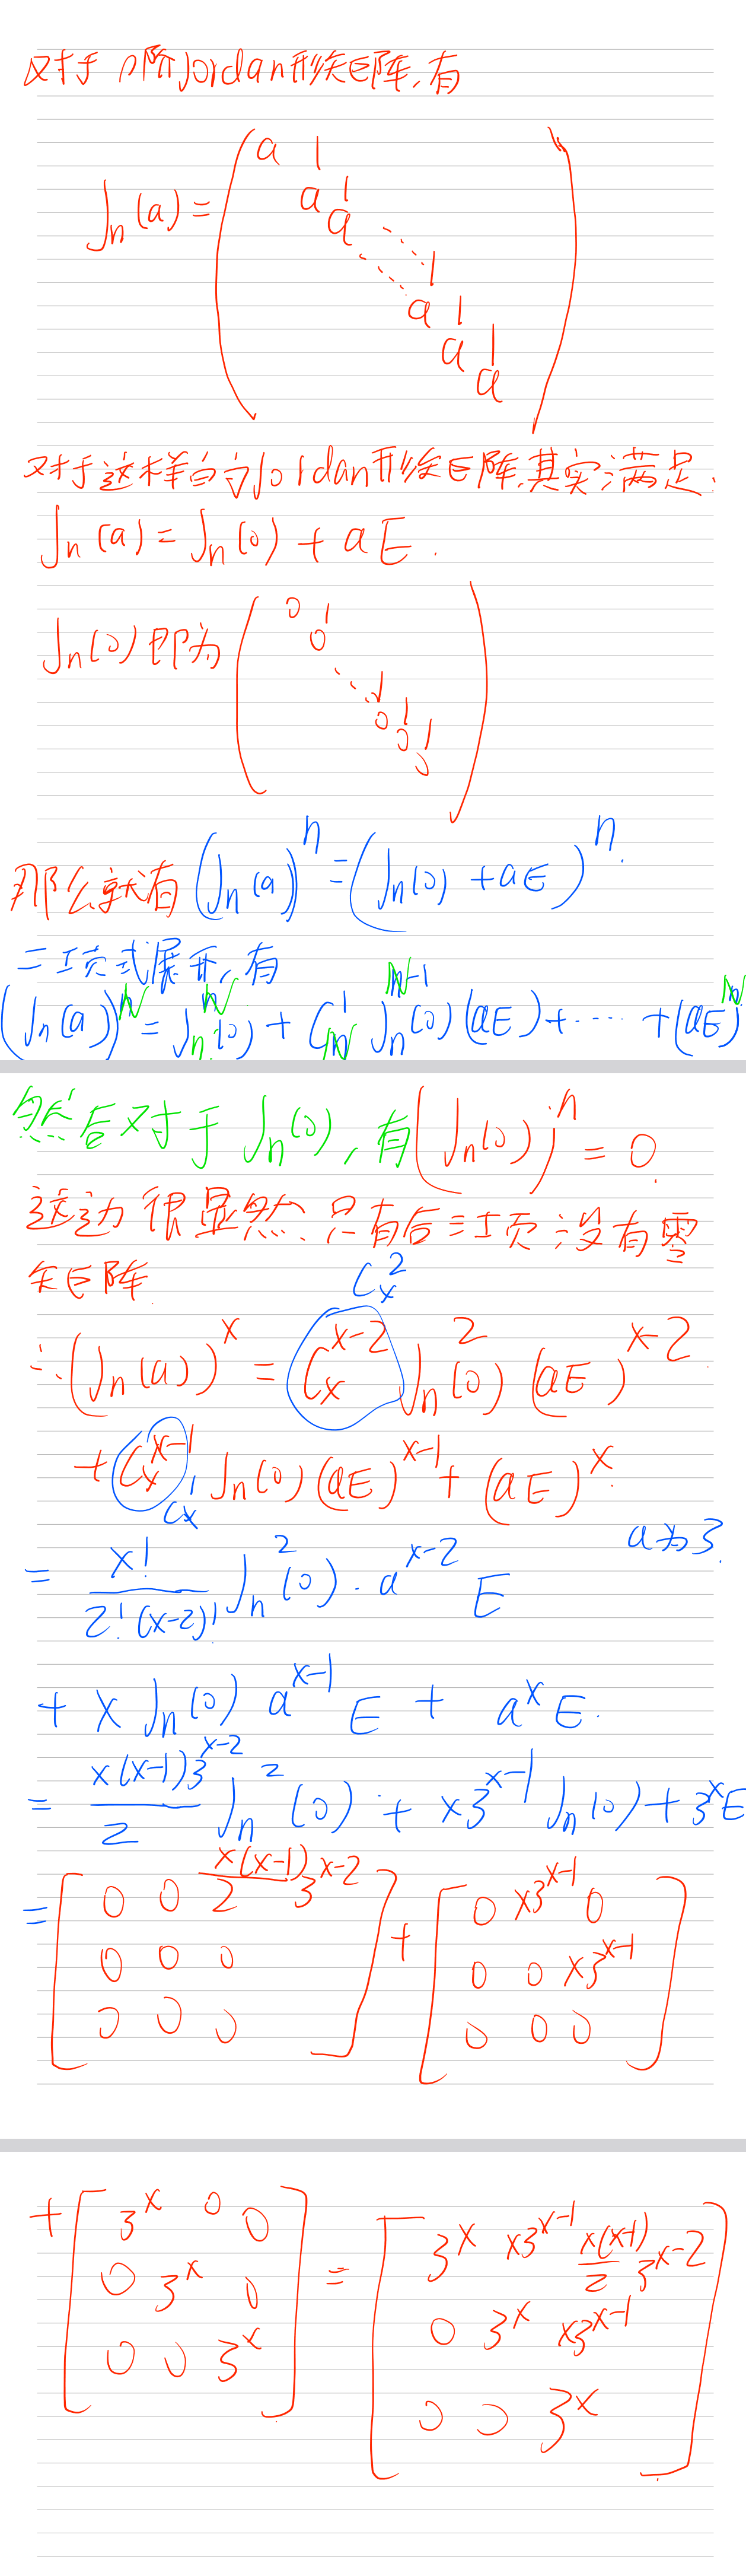 对于n阶Jordan形矩阵,有
Jn(a) = ( a 1
a 1
a
⋱ 1
a 1
a 1
a )
对于这样的Jordan形矩阵,其实满足:
Jn(a) = Jn(0) + aE.
Jn(0)即为 ( 0 1
0
⋱ 1
0 1
0 1
0 )
那么就有 (Jn(a))^n = (Jn(0) + aE)^n.
二项式展开,有
(Jn(a))^N = Jn^N(0) + C_N^1 Jn^{N-1}(0)(aE) + ⋯ + (aE)^N
然后对于Jn(0),有(Jn(0))^n = 0.
这边很显然,只有后三项没有零
矩阵
C_x^2
∴(Jn(a))^x = C_x^{x-2} Jn^2(0) (aE)^{x-2}
+ C_x^{x-1} Jn(0)(aE)^{x-1} + (aE)^x.
C_x^1
a为3.
= x!/(2!(x-2)!) Jn^2(0)·a^{x-2} E
+ x Jn(0) a^{x-1} E + a^x E.
= x(x-1)3^{x-2}/2 Jn^2(0) + x3^{x-1} Jn(0) + 3^x E
= [ 0 0 x(x-1)/2 3^{x-2} ] + [ 0 x3^{x-1} 0 ]
[ 0 0 0 ] [ 0 0 x3^{x-1} ]
[ 0 0 0 ] [ 0 0 0 ]
+ [ 3^x 0 0 ] = [ 3^x x3^{x-1} x(x-1)/2 3^{x-2} ]
[ 0 3^x 0 ] [ 0 3^x x3^{x-1} ]
[ 0 0 3^x ] [ 0 0 3^x ]